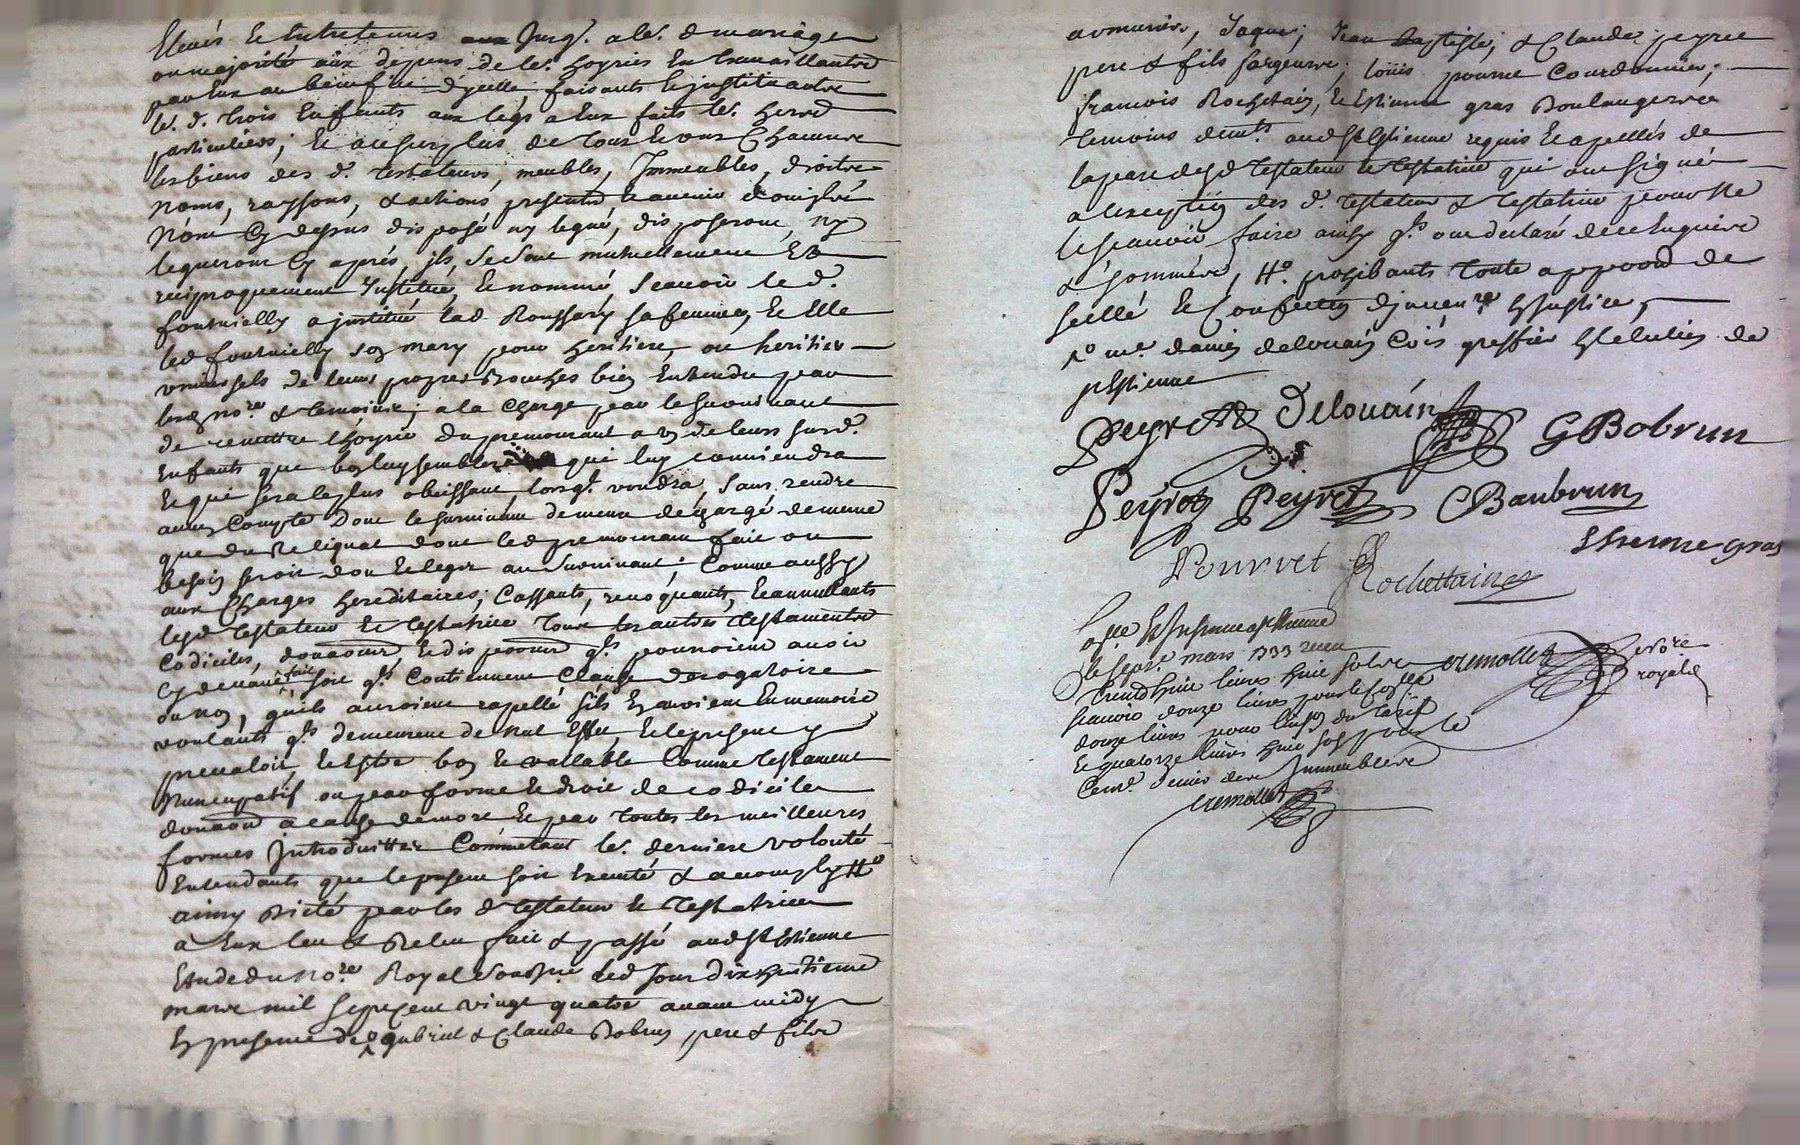 Elevés & Entretenus Jusq. a le. d mariage
ou majorité aux depens de le. hoyries En travaillants
par Eux au benefice d'ycelle faisants & justituants
le. d. trois Enfants aux legs a Eux faits le. herrs
particuliers; Et au surplus de tous & uns Chacuns
les biens des d. testateurs, meubles, Immeubles, droits
noms, raysons, & actions presents & avenir donils
n'ont Cy dessus disposé ny legué, disposeront, ny
legueront Cy aprés jls se sont mutuellement Et
reciproquement Institué, & nommé scauoir le d.
fontvielly a justitué lad Roussary sa femme, & Elle
led fontvielly son mary pour heritiere, ou heritier
vniuersels de leurs propres Bouches bien Entendu par
lesd. nore. & temoins; a la Charge par le suruiuant
de remettre l'hoyrie du premourant a vn de leurs susd.
Enfants que bon luy semblera qui luy conuiendra
& qui sera le plus obeissant, lorsqt. voudra, sans rendre
aucun Compte dont le suruiuant demeure dechargé de meme
que du Reliquat dont led premourant fait ou
besoin seroit don & leger au suruiuant; Comme aussy
aux Charges hereditaires; Cassants, reuoquants, & annullants
lesd testateur & testatrice tous les autres testaments
Codiciles, donaons & dispoons qls pourroient auoir
Cy deuant fait, soit qls Contiennent Clause derogatoire
ou non, quils auroient rapellé sils En avoient En memoire
voulants qls demeurent de nul Effet, & le present y
preualoir, & Estre bon & vallable Comme testament
Nuncupatif ou par forme & droit de codiciles
donaons a cause de mort & par toutes les meilleures
formes Introduittes Comme tant le. derniere volonté
Entendants que le present soit Executé & accomply Ho
ainsy dicté par les d testateur & testatrice
a Eux leu & Releu fait & passé aud St Estienne
Etude du nore. Royal soussne. led Jour dix huitieme
mars mil sept cent vingt quatre auant midy
En presence de gabriel & Claude Bobrun pere & fils
armuriers, Jaques, Jean Baptiste, & Claude peyret
pere & fils forgeurs, loüis pourret Courdonnier,
francois Rochetain, & Estienne gras Boulangers
temoins demts. aud St Estienne requis & apellés de
la part desd testateur & testatrice qui ont signé
a l'exception des d. testateur & testatrice pour ne
le scauoir faire ainsy qls ont declaré de ce Enquis
& sommés, Ho. prohibants toute appoon de
scellé & Confection d'jnuenre. En Justice,
Po me. damien delouain Cois greffier En l'election de
st Estienne
Peyret Delouain G Bobrun
Peyret Peyret C Baubrun
Etienne gras
Pourret Rochettain
Colle. & Insinué a St Etienne
le sept. mars 1733 receu
trente huit liures huit sols
scauoir douze liures pour le Colle
douze liures pour l'insn du tarif
& quatorze liures huit sols pour le
Cent. denier des Immeubles
cremollet Nore
royal
cremollet